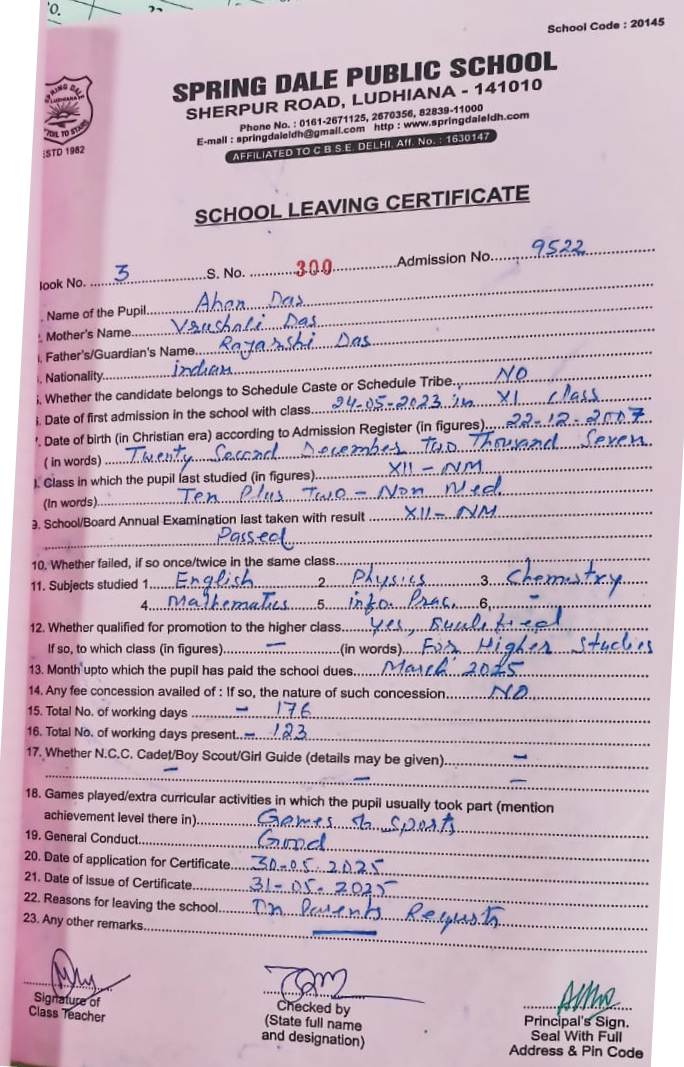 School Code : 20145
SPRING DALE PUBLIC SCHOOL
SHERPUR ROAD, LUDHIANA - 141010
Phone No. : 0161-2671125, 2670356, 82839-11000
E-mail : springdaleldh@gmail.com http : www.springdaleldh.com
AFFILIATED TO C B.S.E. DELHI, Aff. No. : 1630147
SPRING DALE
LUDHIANA
TOIL TO STARS
ESTD 1982
SCHOOL LEAVING CERTIFICATE
look No. 3 S. No. 300 Admission No. 9522
Name of the Pupil Ahan Das
Mother's Name Vrushali Das
Father's/Guardian's Name Rajarshi Das
Nationality Indian
Whether the candidate belongs to Schedule Caste or Schedule Tribe. NO
Date of first admission in the school with class 24-05-2023 in XI class
Date of birth (in Christian era) according to Admission Register (in figures) 22-12-2007
( in words) Twenty Second December Two Thousand Seven
Class in which the pupil last studied (in figures) XII - NM
(In words) Ten Plus Two - Non Med.
9. School/Board Annual Examination last taken with result XII - NM
Passed
10. Whether failed, if so once/twice in the same class
11. Subjects studied 1. English 2 Physics 3. Chemistry
4. Mathematics 5. info. Prac. 6, -
12. Whether qualified for promotion to the higher class yes,
If so, to which class (in figures) - (in words) For Higher Studies
13. Month upto which the pupil has paid the school dues. March 2025
14. Any fee concession availed of : If so, the nature of such concession NO
15. Total No. of working days - 176
16. Total No. of working days present - 123
17. Whether N.C.C. Cadet/Boy Scout/Girl Guide (details may be given) -
- - -
18. Games played/extra curricular activities in which the pupil usually took part (mention
achievement level there in) Games & Sports
19. General Conduct Good
20. Date of application for Certificate 30-05-2025
21. Date of issue of Certificate 31-05-2025
22. Reasons for leaving the school On Parents Request
23. Any other remarks
Signature of
Class Teacher
Checked by
(State full name
and designation)
Principal's Sign.
Seal With Full
Address & Pin Code